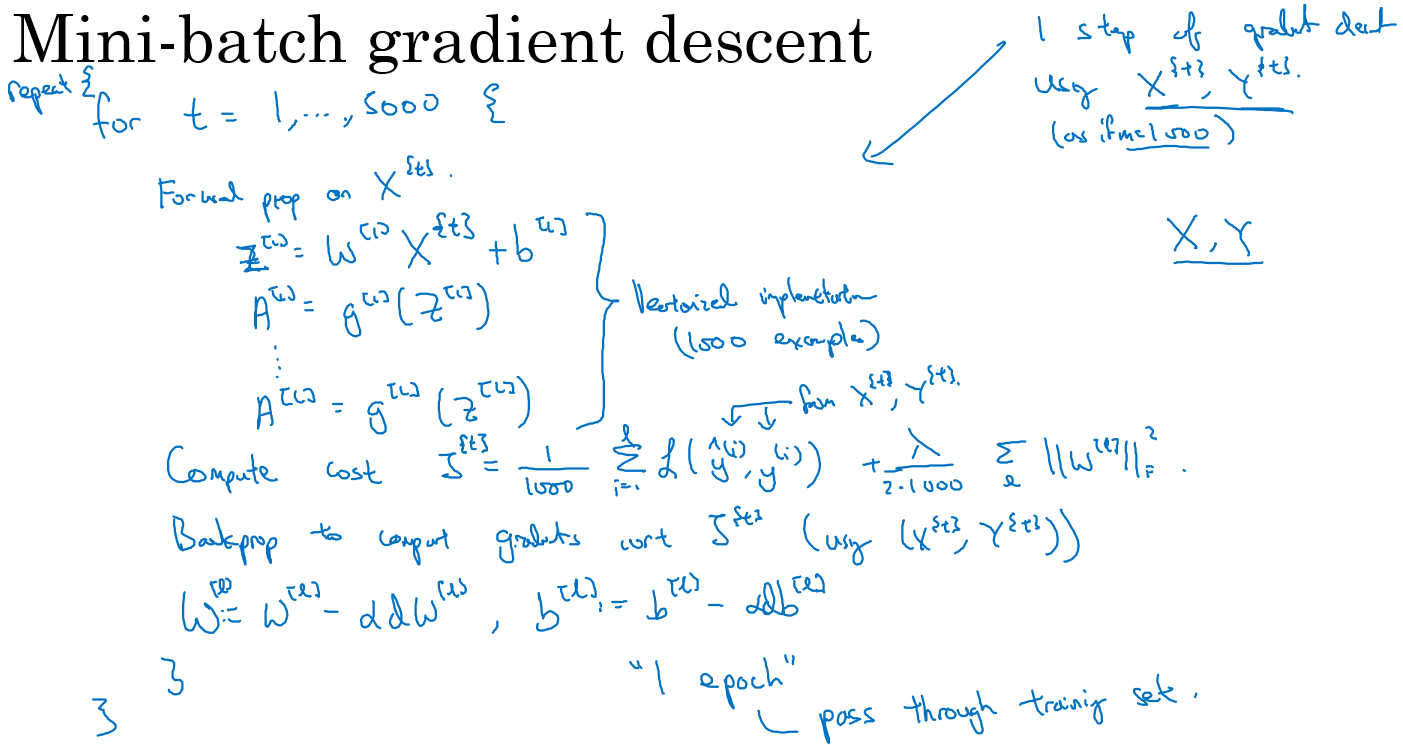 Mini-batch gradient descent
1 step of gradient descent
using X^{t}, Y^{t}.
(as if m=1000)
repeat {
for t = 1,..., 5000 {
X, Y
Forward prop on X^{t}.
Z^[1] = W^[1] X^{t} + b^[1]
A^[1] = g^[1](Z^[1])
⋮
A^[L] = g^[L](Z^[L])
Vectorized implementation
(1000 examples)
from X^{t}, Y^{t}.
Compute cost J^{t} = 1/1000 Σ_{i=1}^{l} L(ŷ^(i), y^(i)) + λ/(2·1000) Σ_l ||W^[l]||_F^2.
Backprop to compute gradients wrt J^{t} (using (X^{t}, Y^{t}))
W^[l] := W^[l] - αdW^[l], b^[l] := b^[l] - αdb^[l]
}
}
"1 epoch"
pass through training set.